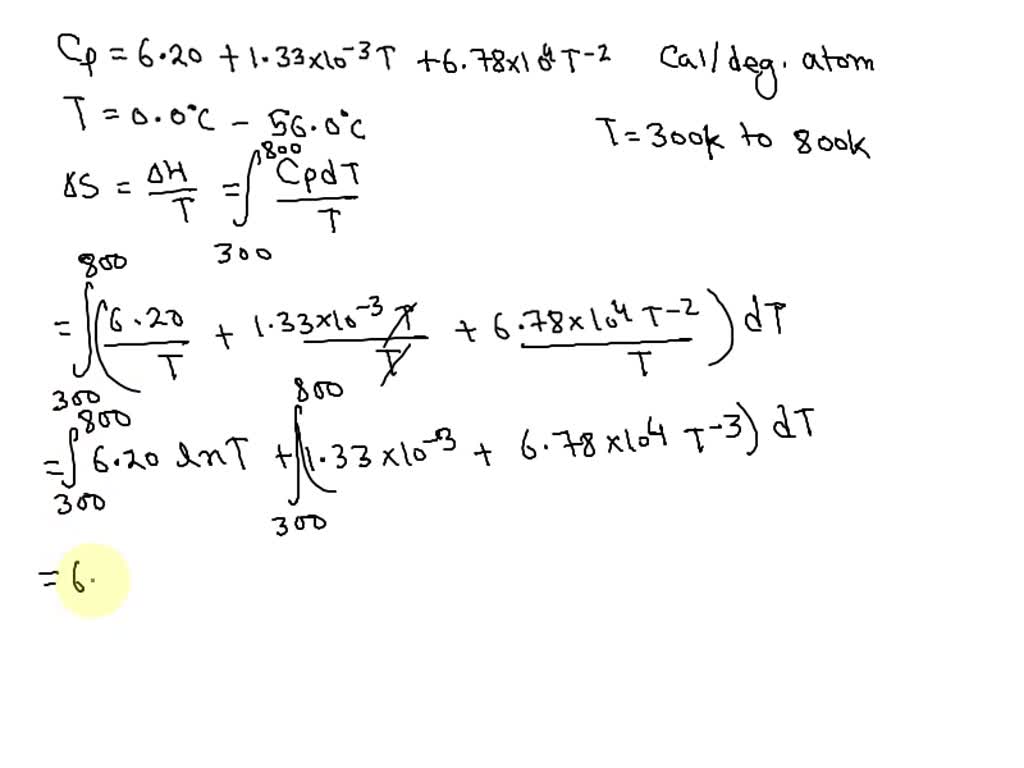 Cp = 6.20 + 1.33×10⁻³T + 6.78×10⁴T⁻² Cal/deg. atom
T = 0.0°C – 56.0°C
T = 300k to 800k
ΔS = ΔH/T = ∫₃₀₀⁸⁰⁰ CpdT/T
= ∫₃₀₀⁸⁰⁰ (6.20/T + 1.33×10⁻³T/T + 6.78×10⁴T⁻²/T) dT
= ∫₃₀₀⁸⁰⁰ 6.20 lnT + ∫₃₀₀⁸⁰⁰ (1.33×10⁻³ + 6.78×10⁴ T⁻³) dT
= 6.